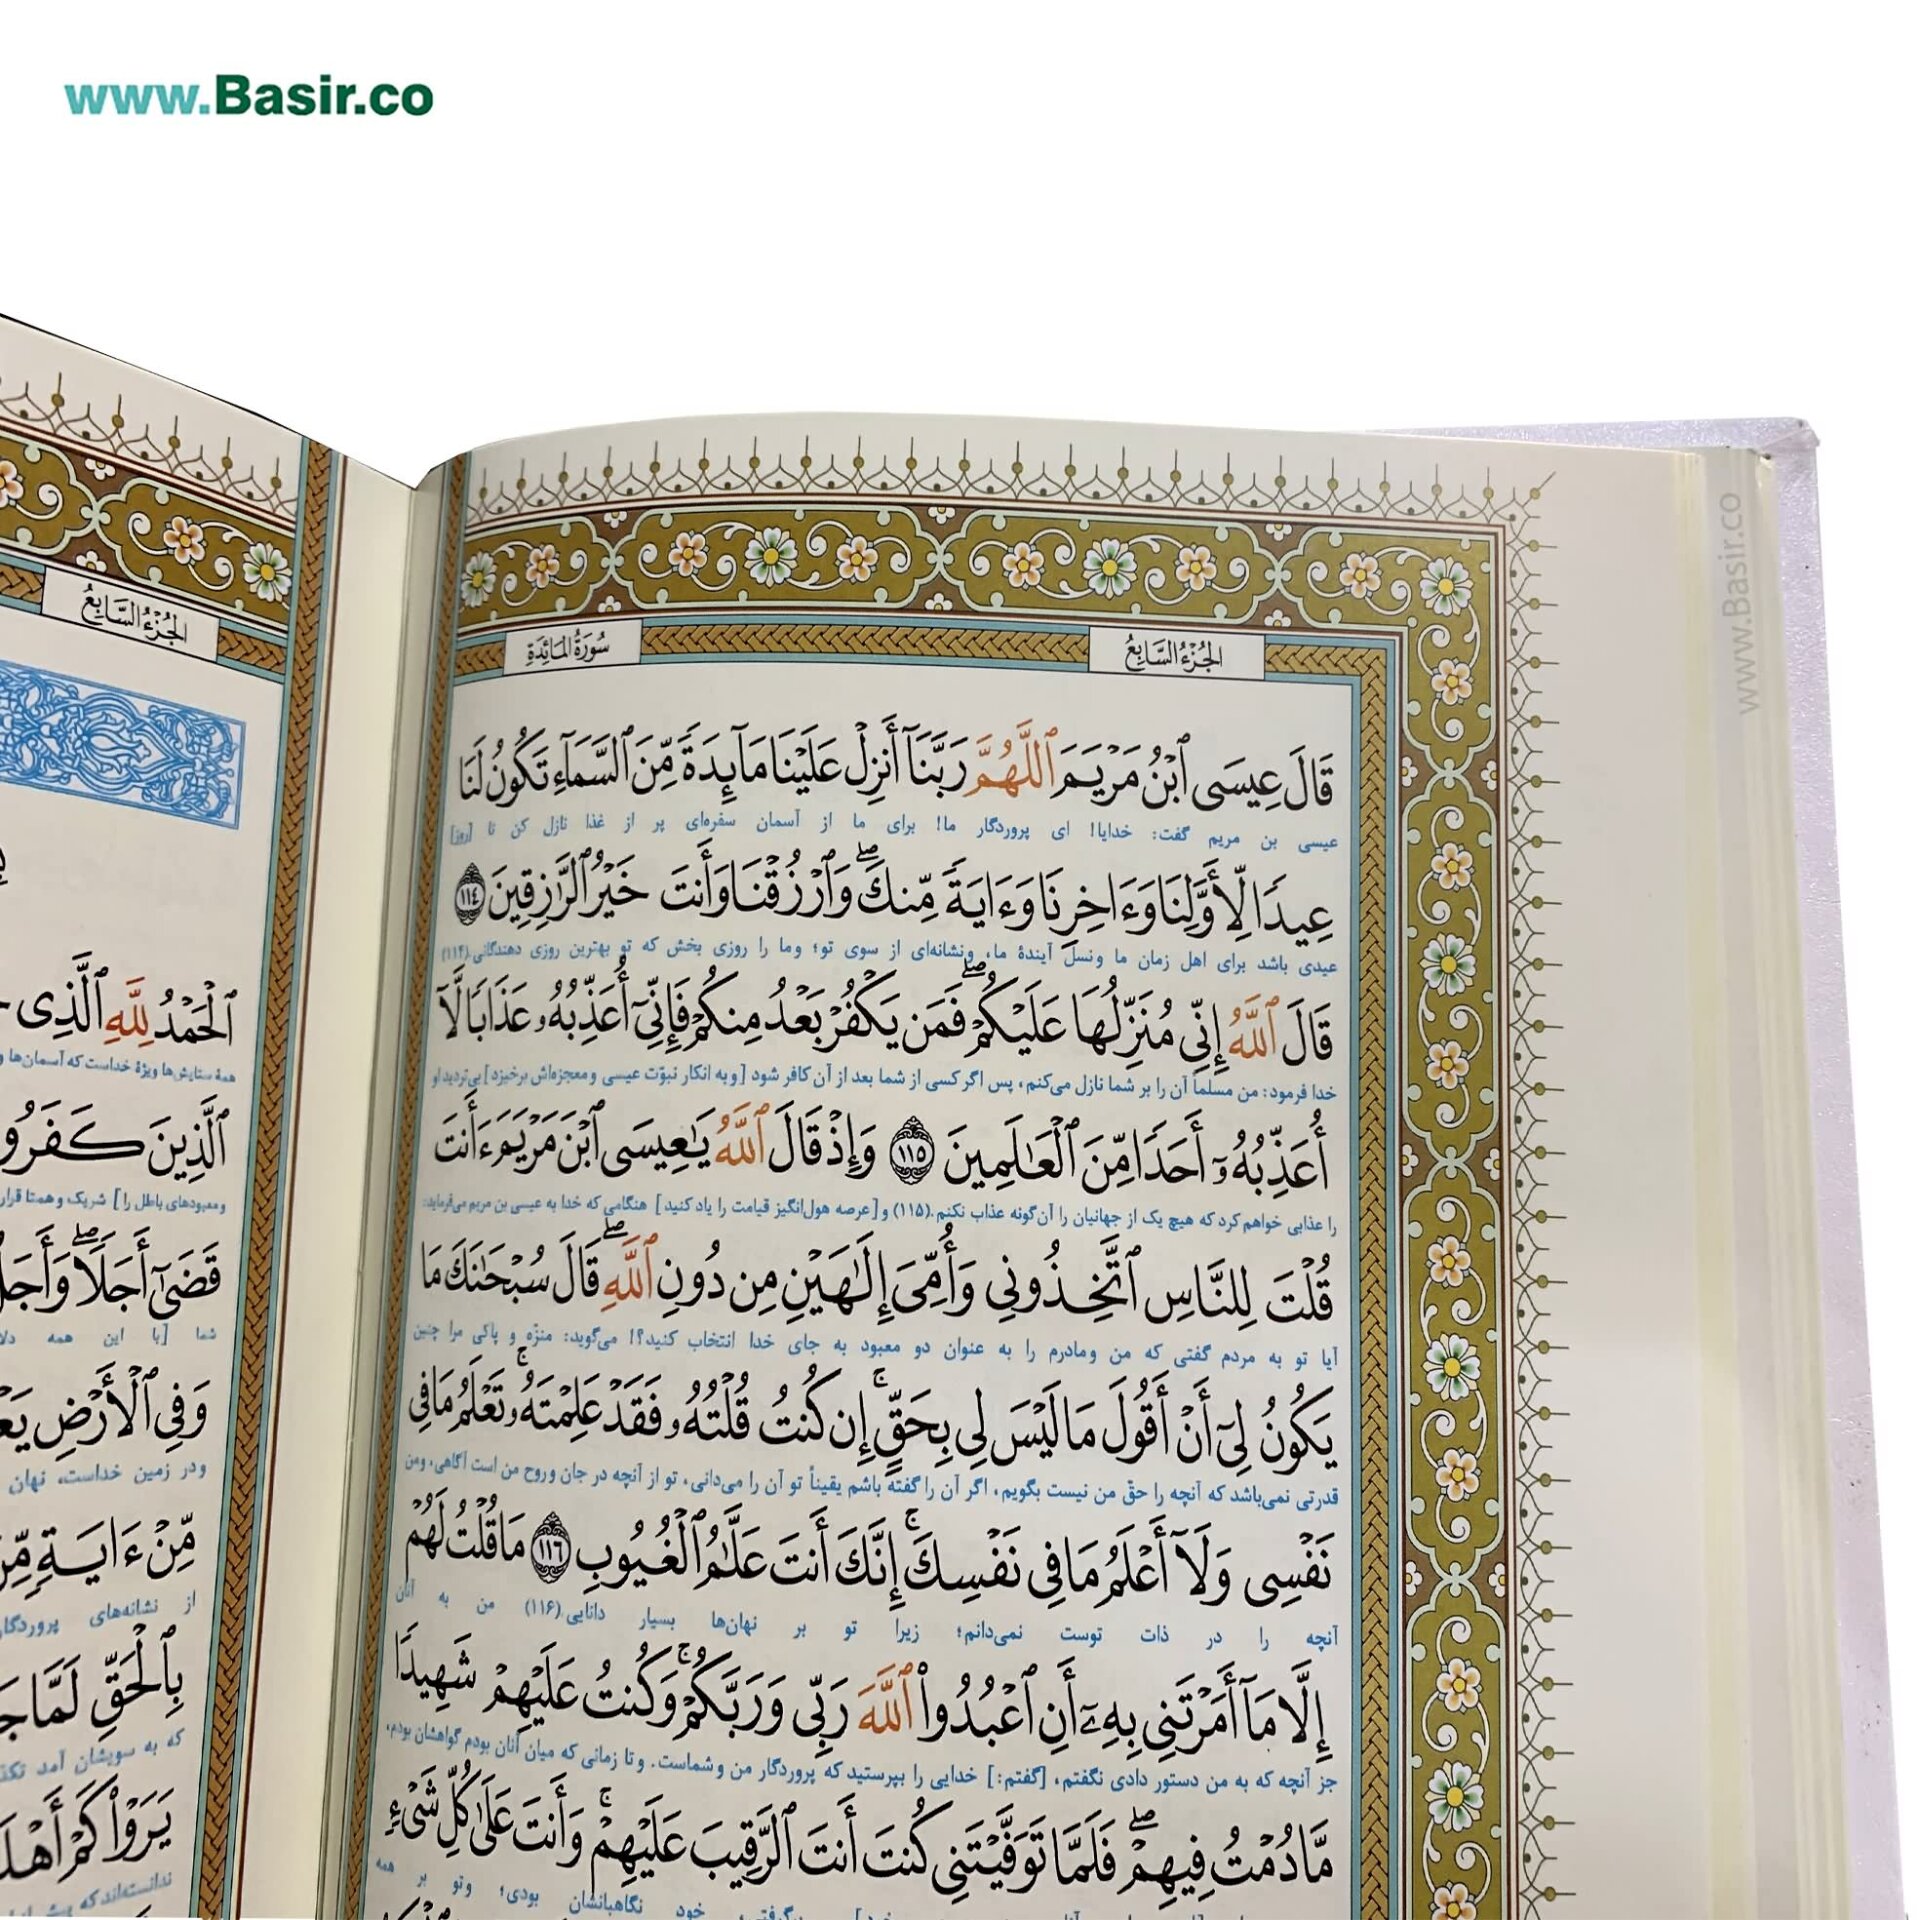 www.Basir.co
www.Basir.co
الجُزْءُ السَّابِعُ
سُورَةُ المَائِدَةِ
قَالَ عِيسَى ٱبْنُ مَرْيَمَ ٱللَّهُمَّ رَبَّنَآ أَنزِلْ عَلَيْنَا مَآئِدَةً مِّنَ ٱلسَّمَآءِ تَكُونُ لَنَا
عیسی بن مریم گفت: خدایا! ای پروردگار ما! برای ما از آسمان سفره‌ای پر از غذا نازل کن تا [روز]
عِيدًا لِّأَوَّلِنَا وَءَاخِرِنَا وَءَايَةً مِّنكَ ۖ وَٱرْزُقْنَا وَأَنتَ خَيْرُ ٱلرَّٰزِقِينَ ١١٤
عیدی باشد برای اهل زمان ما ونسل آیندهٔ ما، ونشانه‌ای از سوی تو؛ وما را روزی بخش که تو بهترین روزی دهندگانی.(۱۱۴)
قَالَ ٱللَّهُ إِنِّى مُنَزِّلُهَا عَلَيْكُمْ ۖ فَمَن يَكْفُرْ بَعْدُ مِنكُمْ فَإِنِّىٓ أُعَذِّبُهُۥ عَذَابًا لَّآ
خدا فرمود: من مسلماً آن را بر شما نازل می‌کنم، پس اگر کسی از شما بعد از آن کافر شود [و به انکار نبوّت عیسی و معجزه‌اش برخیزد] بی‌تردید او
أُعَذِّبُهُۥٓ أَحَدًا مِّنَ ٱلْعَٰلَمِينَ ١١٥ وَإِذْ قَالَ ٱللَّهُ يَٰعِيسَى ٱبْنَ مَرْيَمَ ءَأَنتَ
را عذابی خواهم کرد که هیچ یک از جهانیان را آن‌گونه عذاب نکنم.(۱۱۵) و [عرصه هول‌انگیز قیامت را یاد کنید] هنگامی که خدا به عیسی بن مریم می‌فرماید:
قُلْتَ لِلنَّاسِ ٱتَّخِذُونِى وَأُمِّىَ إِلَٰهَيْنِ مِن دُونِ ٱللَّهِ ۖ قَالَ سُبْحَٰنَكَ مَا
آیا تو به مردم گفتی که من ومادرم را به عنوان دو معبود به جای خدا انتخاب کنید؟! می‌گوید: منزّه و پاکی مرا چنین
يَكُونُ لِىٓ أَنْ أَقُولَ مَا لَيْسَ لِى بِحَقٍّ ۚ إِن كُنتُ قُلْتُهُۥ فَقَدْ عَلِمْتَهُۥ ۚ تَعْلَمُ مَا فِى
قدرتی نمی‌باشد که آنچه را حقّ من نیست بگویم، اگر آن را گفته باشم یقیناً تو آن را می‌دانی، تو از آنچه در جان وروح من است آگاهی، ومن
نَفْسِى وَلَآ أَعْلَمُ مَا فِى نَفْسِكَ ۚ إِنَّكَ أَنتَ عَلَّٰمُ ٱلْغُيُوبِ ١١٦ مَا قُلْتُ لَهُمْ
آنچه را در ذات توست نمی‌دانم؛ زیرا تو بر نهان‌ها بسیار دانایی.(۱۱۶) من به آنان
إِلَّا مَآ أَمَرْتَنِى بِهِۦٓ أَنِ ٱعْبُدُوا۟ ٱللَّهَ رَبِّى وَرَبَّكُمْ ۚ وَكُنتُ عَلَيْهِمْ شَهِيدًا
جز آنچه که به من دستور دادی نگفتم، [گفتم:] خدایی را بپرستید که پروردگار من وشماست. وتا زمانی که میان آنان بودم گواهشان بودم،
مَّا دُمْتُ فِيهِمْ ۖ فَلَمَّا تَوَفَّيْتَنِى كُنتَ أَنتَ ٱلرَّقِيبَ عَلَيْهِمْ ۚ وَأَنتَ عَلَىٰ كُلِّ شَىْءٍ
نگاهبانشان بودی؛ وتو بر همه
الجُزْءُ السَّابِعُ
ٱلْحَمْدُ لِلَّهِ ٱلَّذِى
همهٔ ستایش‌ها ویژهٔ خداست که آسمان‌ها و
ٱلَّذِينَ كَفَرُو
ومعبودهای باطل را] شریک و همتا قرار
قَضَىٰٓ أَجَلًا ۖ وَأَجَلٌ
شما [با این همه
وَفِى ٱلْأَرْضِ يَعْ
ودر زمین خداست، نهان
مِّنْ ءَايَةٍ مِّنْ
از نشانه‌های پروردگار
بِٱلْحَقِّ لَمَّا جَ
که به سویشان آمد
يَرَوْا۟ كَمْ أَهْلَ
ندانسته‌اند که